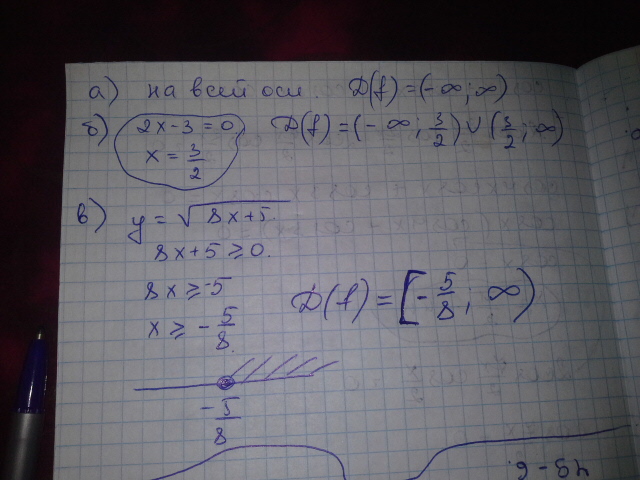 а) на всей оси. D(f) = (-∞; ∞)
б) 2x-3=0 D(f) = (-∞; 3/2) ∪ (3/2; ∞)
x = 3/2
в) y = √8x+5
8x+5 ≥ 0.
8x ≥ -5
x ≥ -5/8. D(f) = [-5/8; ∞)
-5/8